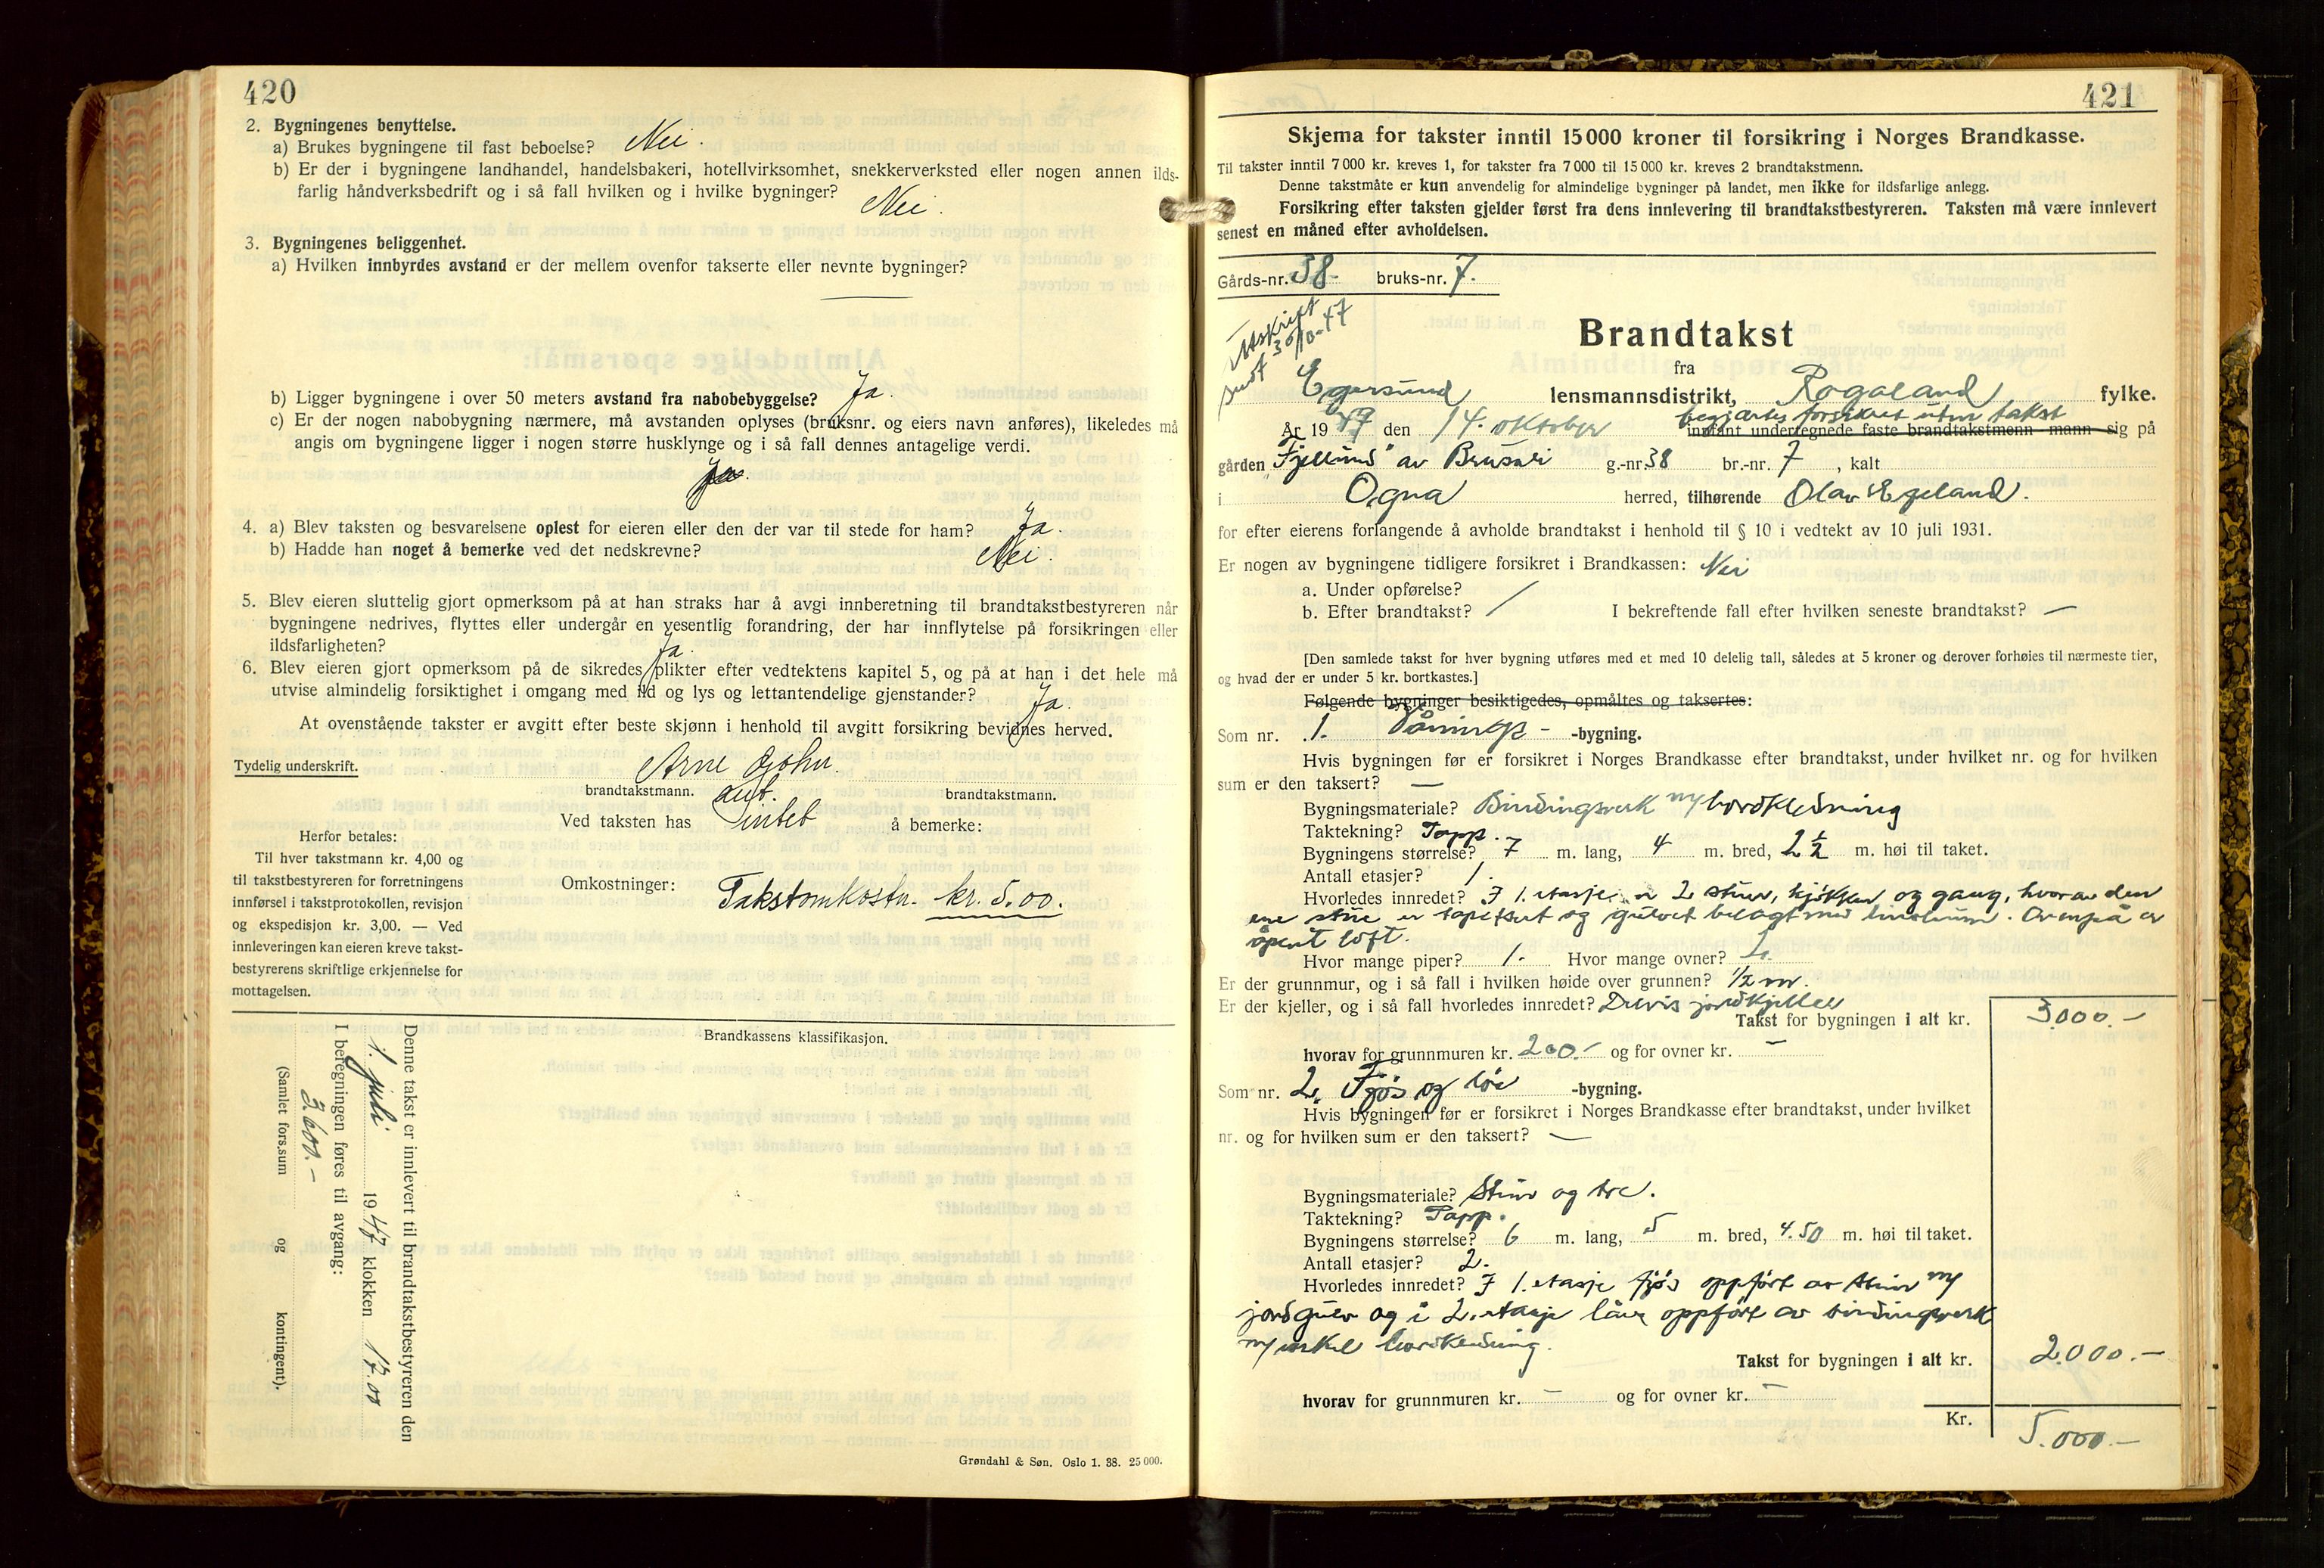 420
2. Bygningenes benyttelse.
a) Brukes bygningene til fast beboelse? Nei.
b) Er der i bygningene landhandel, handelsbakeri, hotellvirksomhet, snekkerverksted eller nogen annen ilds-
farlig håndverksbedrift og i så fall hvilken og i hvilke bygninger? Nei.
3. Bygningenes beliggenhet.
a) Hvilken innbyrdes avstand er der mellem ovenfor takserte eller nevnte bygninger?
b) Ligger bygningene i over 50 meters avstand fra nabobebyggelse? Ja.
c) Er der nogen nabobygning nærmere, må avstanden oplyses (bruksnr. og eiers navn anføres), likeledes må
angis om bygningene ligger i nogen større husklynge og i så fall dennes antagelige verdi.
4. a) Blev taksten og besvarelsene oplest for eieren eller den der var til stede for ham? Ja.
b) Hadde han noget å bemerke ved det nedskrevne? Nei
5. Blev eieren sluttelig gjort opmerksom på at han straks har å avgi innberetning til brandtakstbestyreren når
bygningene nedrives, flyttes eller undergår en vesentlig forandring, der har innflytelse på forsikringen eller
ildsfarligheten? Ja.
6. Blev eieren gjort opmerksom på de sikredes plikter efter vedtektens kapitel 5, og på at han i det hele må
utvise almindelig forsiktighet i omgang med ild og lys og lettantendelige gjenstander? Ja.
At ovenstående takster er avgitt efter beste skjønn i henhold til avgitt forsikring bevidnes herved.
Tydelig underskrift.
Arne
brandtakstmann. brandtakstmann.
Ved taksten has intet å bemerke:
Herfor betales:
Til hver takstmann kr. 4,00 og
til takstbestyreren for forretningens
innførsel i takstprotokollen, revisjon
og ekspedisjon kr. 3,00. — Ved
innleveringen kan eieren kreve takst-
bestyrerens skriftlige erkjennelse for
mottagelsen.
Omkostninger: Takstomkostn. kr. 5.00.
Brandkassens klassifikasjon.
Denne takst er innlevert til brandtakstbestyreren den
1. juli 1947 klokken 17.00
I beregningen føres til avgang:
3.600.-
(Samlet fors.sum og kontingent).
Grøndahl & Søn. Oslo 1. 38. 25 000.
421
Skjema for takster inntil 15 000 kroner til forsikring i Norges Brandkasse.
Til takster inntil 7 000 kr. kreves 1, for takster fra 7 000 til 15 000 kr. kreves 2 brandtakstmenn.
Denne takstmåte er kun anvendelig for almindelige bygninger på landet, men ikke for ildsfarlige anlegg.
Forsikring efter taksten gjelder først fra dens innlevering til brandtakstbestyreren. Taksten må være innlevert
senest en måned efter avholdelsen.
Gårds-nr. 38. bruks-nr. 7.
Utskrift
sendt 30/10-47
Brandtakst
fra
Egersund lensmannsdistrikt, Rogaland fylke.
begjærtes forsikret uten takst
År 1947 den 14. oktober innfant undertegnede faste brandtakstmenn-mann-sig på
gården "Fjellund" av Brusali g.-nr. 38 br.-nr. 7, kalt
i Ogna herred, tilhørende Olav Egeland.
for efter eierens forlangende å avholde brandtakst i henhold til § 10 i vedtekt av 10 juli 1931.
Er nogen av bygningene tidligere forsikret i Brandkassen: Nei
a. Under opførelse?
b. Efter brandtakst? / I bekreftende fall efter hvilken seneste brandtakst? —
[Den samlede takst for hver bygning utføres med et med 10 delelig tall, således at 5 kroner og derover forhøies til nærmeste tier,
og hvad der er under 5 kr. bortkastes.]
Følgende bygninger besiktigedes, opmåltes og taksertes:
Som nr. 1. Vånings- -bygning.
Hvis bygningen før er forsikret i Norges Brandkasse efter brandtakst, under hvilket nr. og for hvilken
sum er den taksert? —
Bygningsmateriale? Bindingsverk m/bordkledning
Taktekning? Papp.
Bygningens størrelse? 7 m. lang, 4 m. bred, 2½ m. høi til taket.
Antall etasjer? 1.
Hvorledes innredet? I 1. etasje er 2 stuer, kjøkken og gang, hvorav den
ene stue er tapetsert og gulvet belagt med linoleum. Ovenpå er
åpent loft.
Hvor mange piper? 1. Hvor mange ovner? 2.
Er der grunnmur, og i så fall i hvilken høide over grunnen? 1/2 m.
Er der kjeller, og i så fall hvorledes innredet? Delvis jordkjeller
Takst for bygningen i alt kr. 3.000.-
hvorav for grunnmuren kr. 200.- og for ovner kr. -
Som nr. 2. Fjøs og løe -bygning.
Hvis bygningen før er forsikret i Norges Brandkasse efter brandtakst, under hvilket
nr. og for hvilken sum er den taksert? —
Bygningsmateriale? Stein og tre.
Taktekning? Papp.
Bygningens størrelse? 6 m. lang, 5 m. bred, 4.50 m. høi til taket.
Antall etasjer? 2.
Hvorledes innredet? I 1. etasje fjøs oppført av stein m/
jordgulv og i 2. etasje låve oppført av bindingsverk
m/enkel bordkledning.
Takst for bygningen i alt kr. 2.000.-
hvorav for grunnmuren kr. - og for ovner kr. -
Kr. 5.000.-